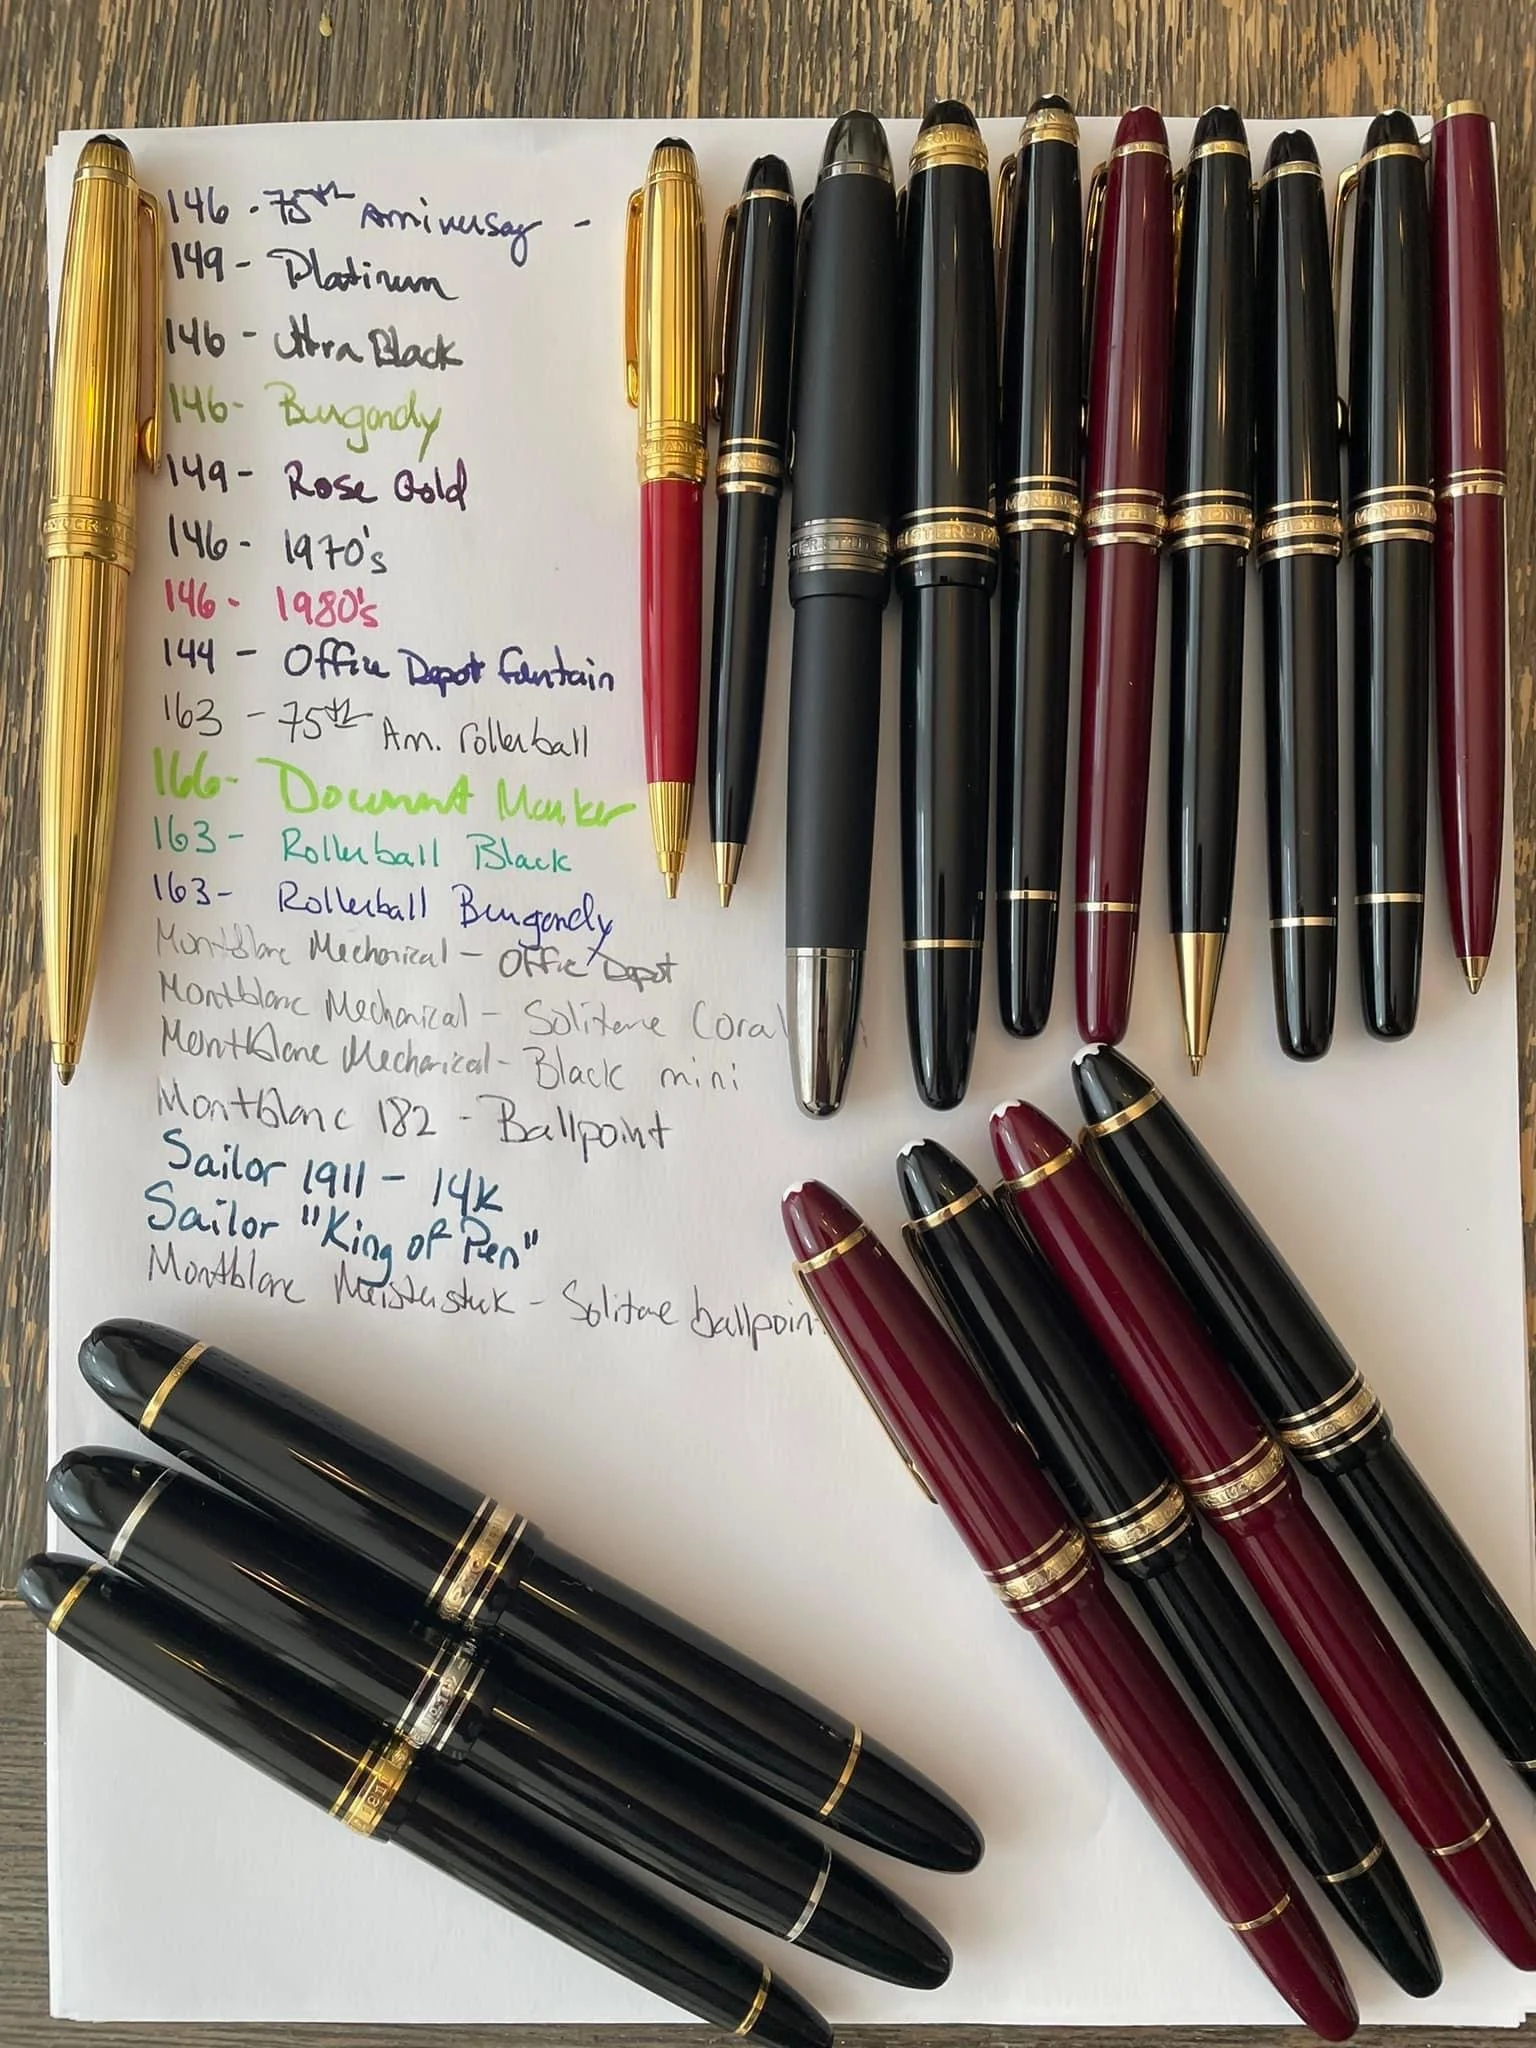 146 - 75th Anniversay -
149 - Platinum
146 - Ultra Black
146 - Burgondy
149 - Rose Gold
146 - 1970's
146 - 1980's
144 - Office Depot fountain
163 - 75th Ann. rollerball
166 - Document Marker
163 - Rollerball Black
163 - Rollerball Burgondy
Montblanc Mechanical - Office Depot
Montblanc Mechanical - Solitare Coral
Montblanc Mechanical - Black mini
Montblanc 182 - Ballpoint
Sailor 1911 - 14K
Sailor "King of Pen"
Montblanc Meisterstuck - Solitare ballpoin